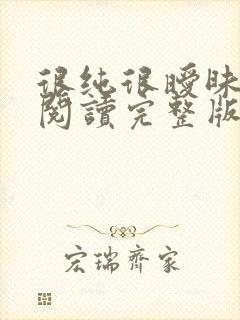 很纯很曖昧
閱讀完整版
宏瑞齊家